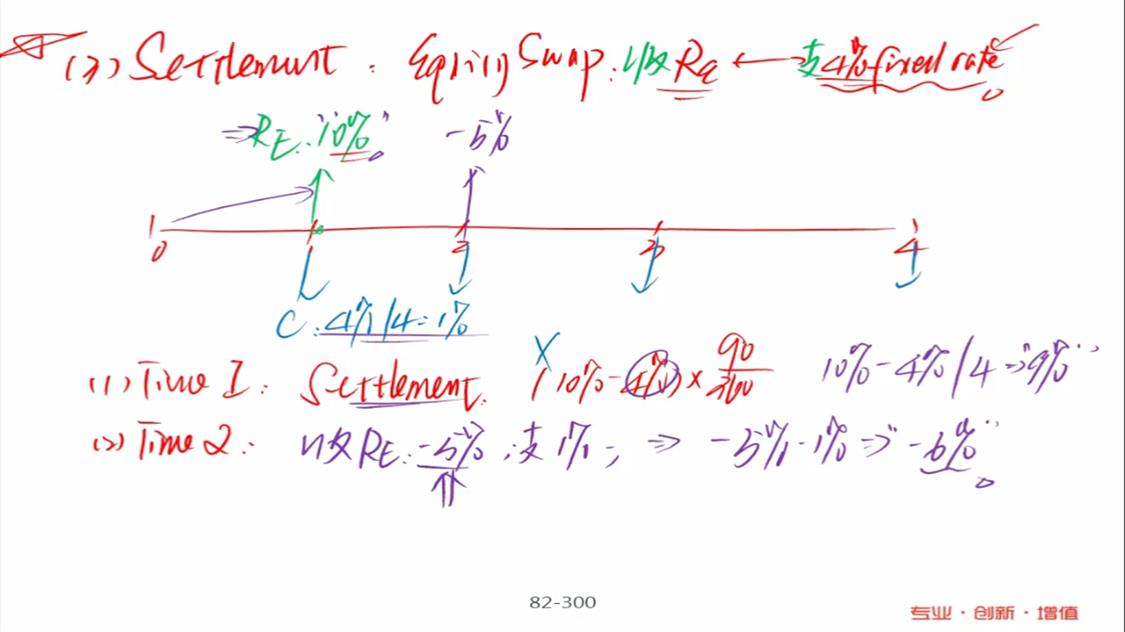 (2) Settlement : Equity Swap: 收 Re ← 支 4% fixed rate
⇒ RE: 10% -5%
0 1 2 3 4
C: 4%/4=1%
(1) Time 1: Settlement. X (10%-4%) × 90/360 10%-4%/4 ⇒ 9%
(2) Time 2: 收 RE: -5%; 支 1%; ⇒ -5%-1% ⇒ -6%
82-300
专业·创新·增值